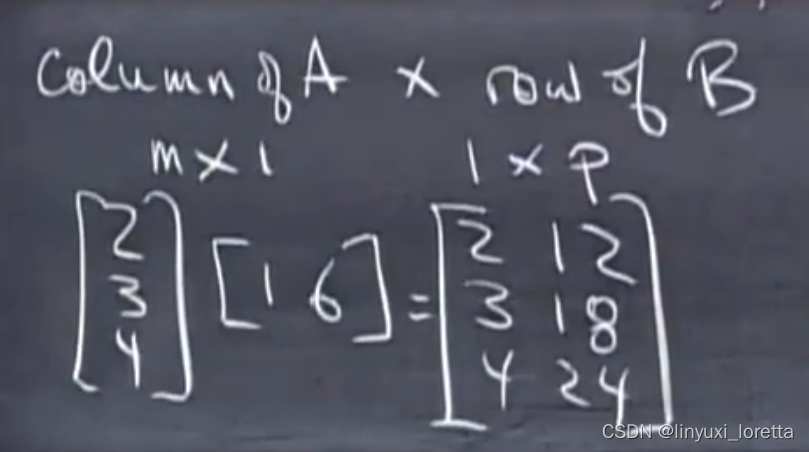 column of A × row of B
m × 1 1 × p
[2 3 4] [1 6] = [2 12 3 18 4 24]
CSDN @linyuxi_loretta